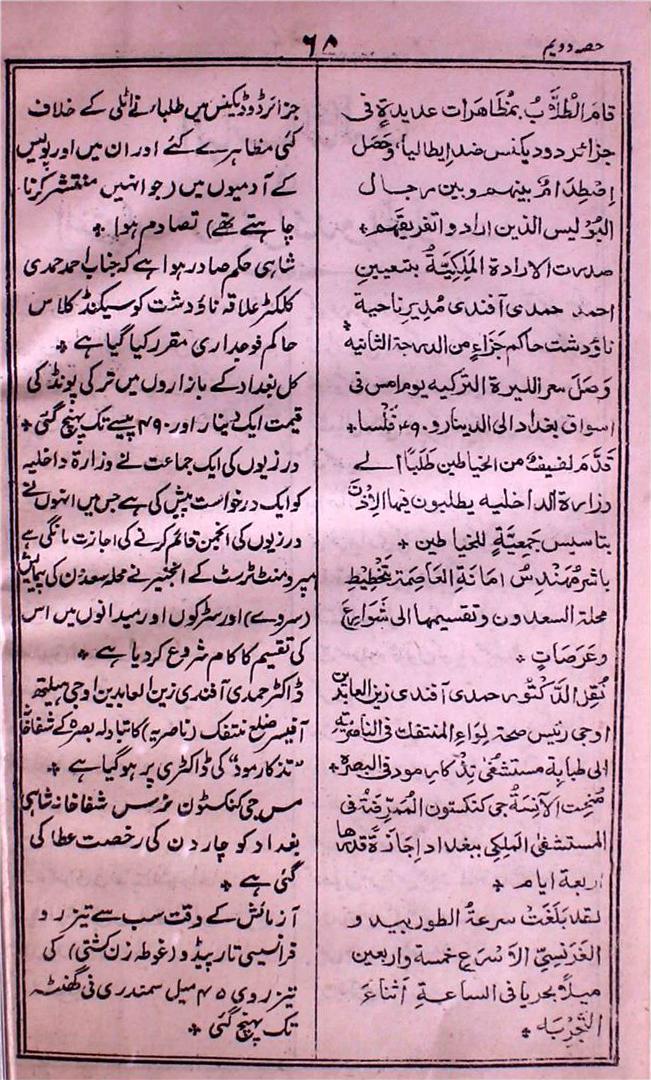 حصه دویم
۶۸
قامَ الْطُلَّابُ بمُظَاهَرات عديدةٍ فى
جزائر دوديكنس ضد إيطاليا، وحَصَل
إصْطِدَامٌ بينهم وبين رجال
البُوليس الذين ارادوا تفريقَهم ٭
صدرت الارادة المَلَكِيَّةُ بتعيينِ
احمد حمدى آفندى مُديرِ ناحية
ناؤدشت حاكم جَزَاءٍ من الدرجة الثانية
وَصَلَ سعر الليرة التركيه يوم امس فى
اسواق بغداد الى الدينار و ۴۹۰ فَلْسا ٭
قَدَّمَ لفيفٌ من الخياطين طَلَبًا الے
وزارة الداخليه يطلبون فيها الإذن
بتاسيس جَمعيَّةٍ للخياطين ٭
باشر مُهَنْدِسُ امانة العاصمة بتَخْطِيطِ
محلة السعدون وتقسيمها الى شَوَارِعَ
وعَرَصَاتٍ ٭
نُقِلَ الدكتور حمدى آفندى زين العابدين
اوجى رئيس صحة لِوَاءِ المنتفك فى الناصرية
الى طبابة مستشفى تِذْكار مود فى البصرة ٭
مُنِحَت الآنِسَةُ جى كنكستون المُمَرِّضَةُ فى
المستشفى المَلَكِى ببغداد إجَازَةً قدرها
اربعة ايام ٭
لقد بَلَغَتْ سرعةُ الطوربيد و
الفَرَنسِىِّ الأسْرَعِ خمسة واربعين
ميلًا بحريا فى الساعةِ أثناءَ
التَّجْرِبَه ٭
جزائر ڈوڈیکنس میں طلباء نے اٹلی کے خلاف
کئی مظاہرے کئے اور ان میں اور پولیس
کے آدمیوں میں (جو انہیں منتشر کرنا
چاہتے تھے) تصادم ہوا ٭
شاہی حکم صادر ہوا ہے کہ جناب احمد حمدی
کلکٹر علاقہ ناؤدشت کو سیکنڈ کلاس
حاکم فوجداری مقرر کیا گیا ہے ٭
کل بغداد کے بازاروں میں ترکی پونڈ کی
قیمت ایک دینار اور ۴۹۰ پیسے تک پہنچ گئی ٭
درزیوں کی ایک جماعت نے وزارۃ داخلیہ
کو ایک درخواست پیش کی ہے جس میں انہوں نے
درزیوں کی انجمن قائم کرنے کی اجازت مانگی ہے
امپرومنٹ ٹرسٹ کے انجنیر نے محلہ سعدون کی پیمایش
(سروے) اور سڑکوں اور میدانوں میں اس
کی تقسیم کا کام شروع کر دیا ہے ٭
ڈاکٹر حمدی آفندی زین العابدین اوجی ہیلتھ
آفیسر ضلع منتفک (ناصریہ) کا تبادلہ بصرہ کے شفاخانہ
”تذکار مود“ کی ڈاکٹری پر ہو گیا ہے ٭
مس جی کنکسٹون نرس شفاخانہ شاہی
بغداد کو چار دن کی رخصت عطا کی
گئی ہے ٭
آزمائش کے وقت سب سے تیز رو
فرانسیسی تارپیڈو (غوطہ زن کشتی) کی
تیز روی ۴۵ میل سمندری فی گھنٹہ
تک پہنچ گئی ٭